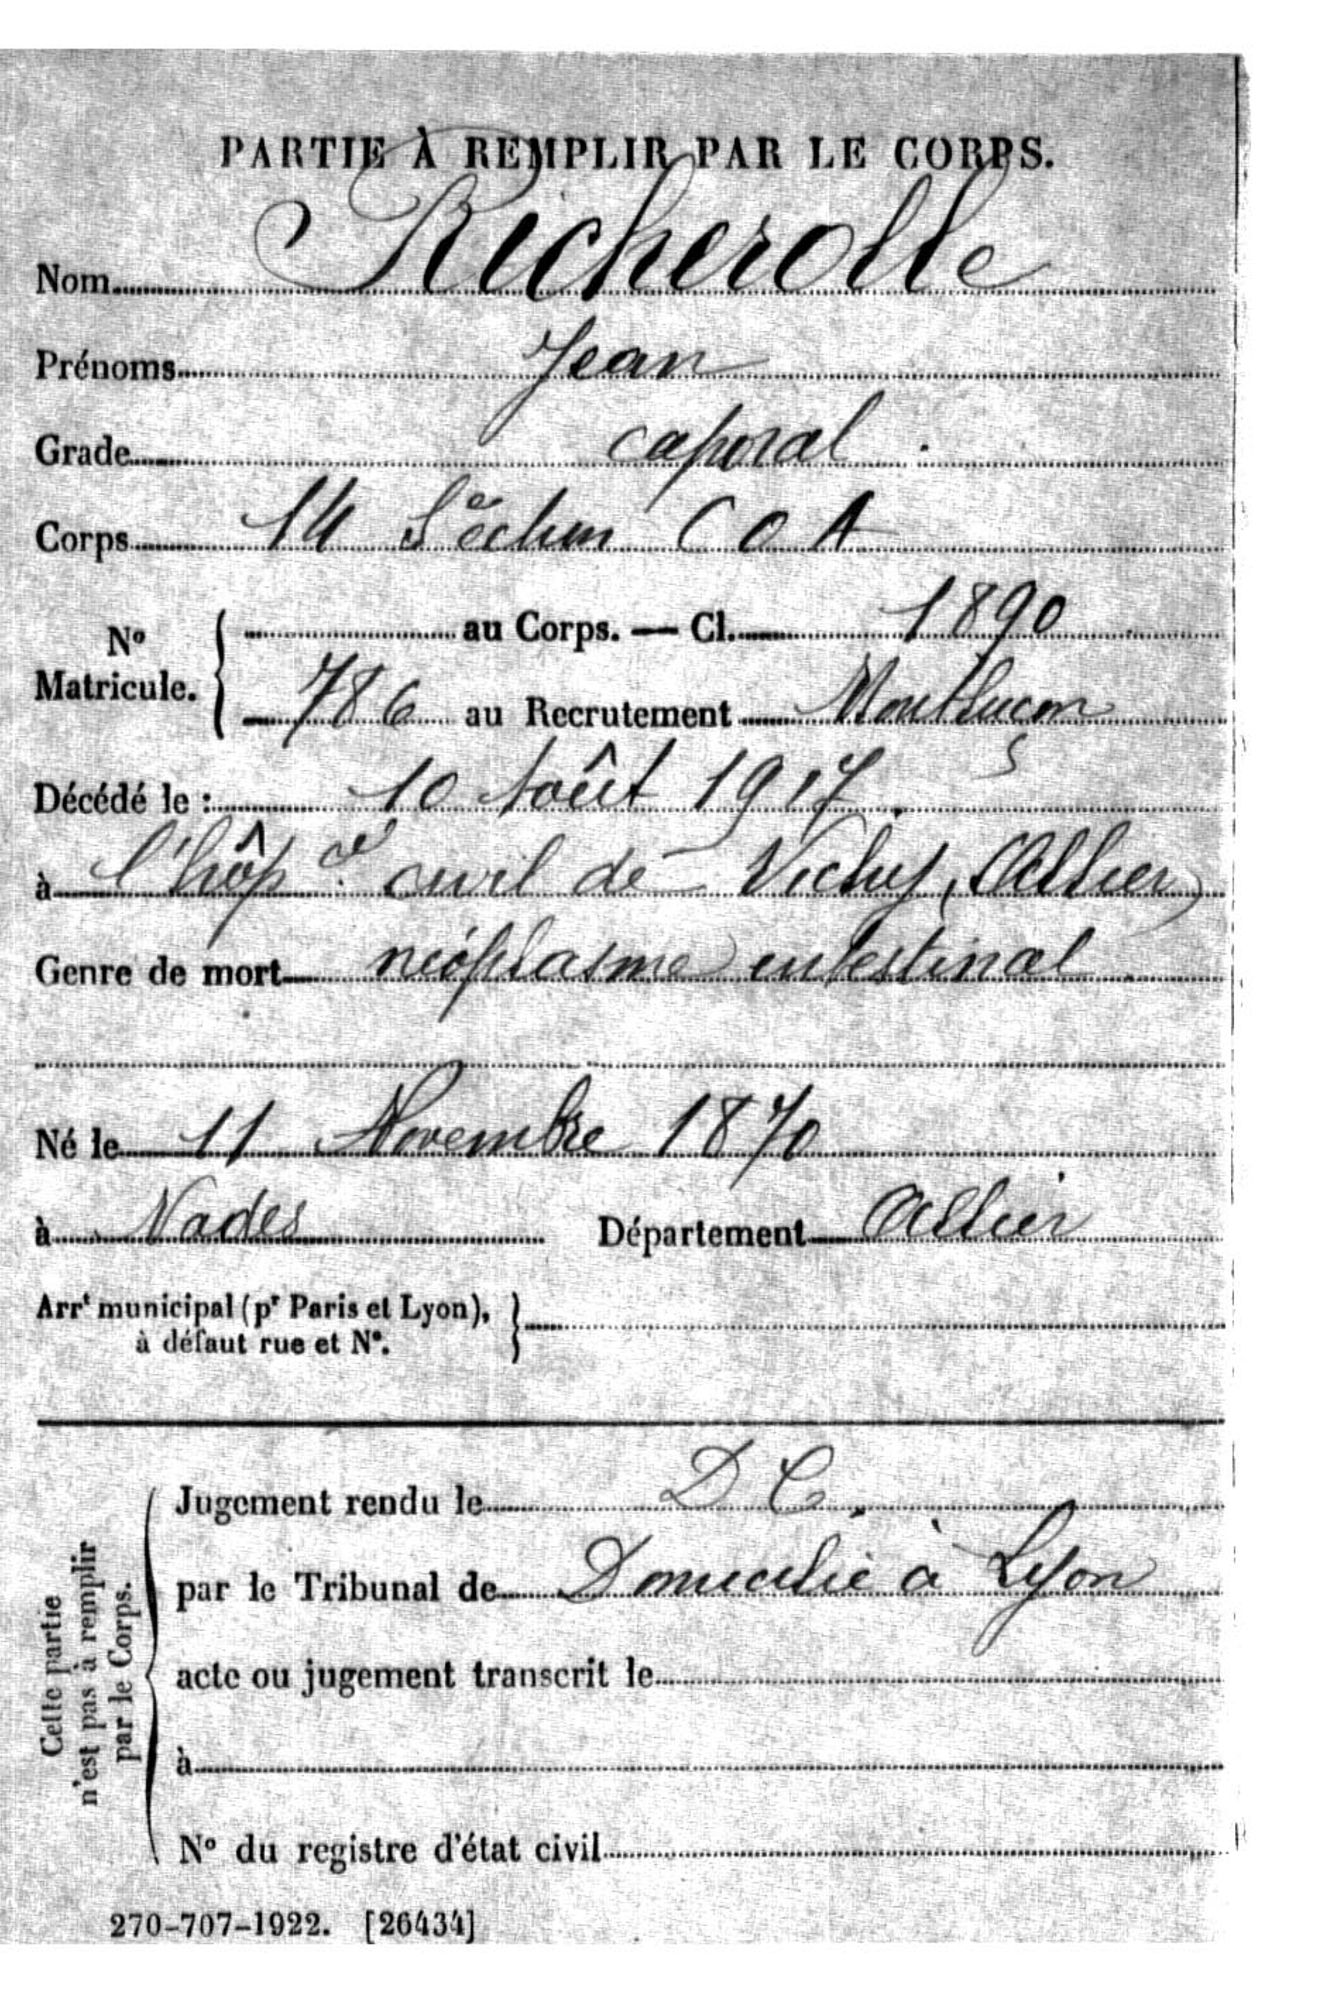 PARTIE À REMPLIR PAR LE CORPS.
Nom Richerolle
Prénoms Jean
Grade caporal
Corps 14e Section C O A
Cl. 1890
No Matricule. { au Corps. — 
786 au Recrutement Montluçon
Décédé le : 10 Août 1917.
à l'hôpal civil de Vichy (Allier)
Genre de mort néoplasme intestinal
Né le 11 Novembre 1870
à Nades Département Allier
Arrt municipal (pr Paris et Lyon),
à défaut rue et No.
Cette partie
n'est pas à remplir
par le Corps.
Jugement rendu le D C.
par le Tribunal de Domicilié à Lyon
acte ou jugement transcrit le
à
No du registre d'état civil
270-707-1922. [26434]